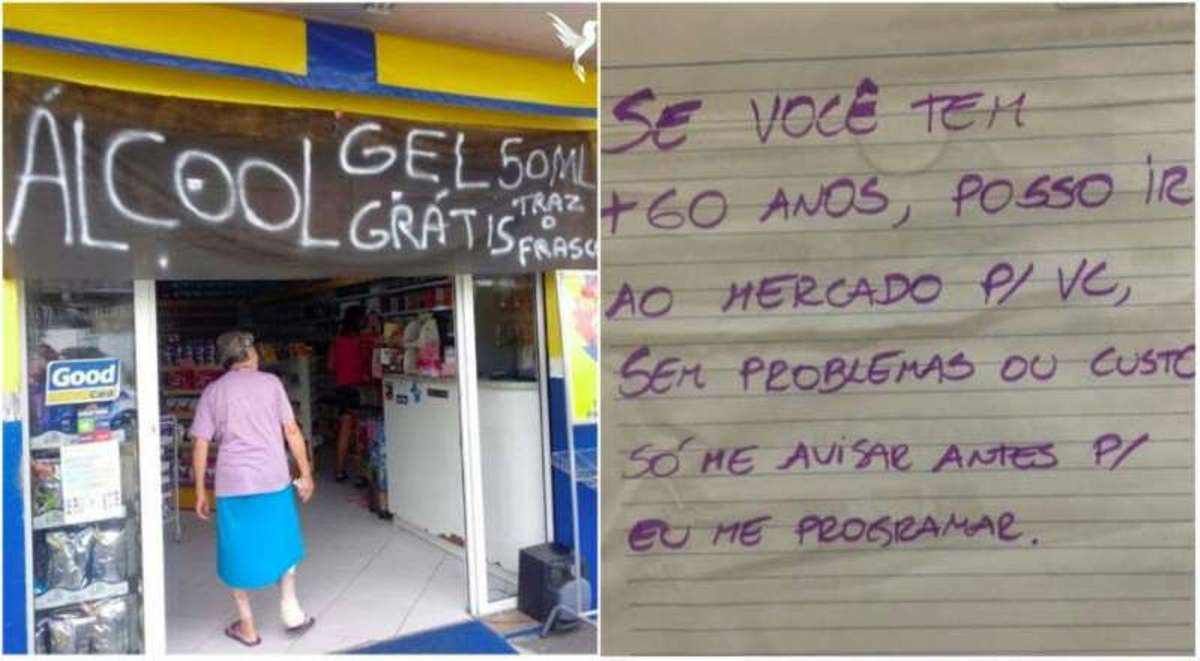 ÁLCOOL
GEL 50ML
GRÁTIS
TRAZ
O
FRASC
Good
Card
SE VOCÊ TEM
+60 ANOS, POSSO IR
AO MERCADO P/ VC,
SEM PROBLEMAS OU CUSTO
SÓ ME AVISAR ANTES P/
EU ME PROGRAMAR.